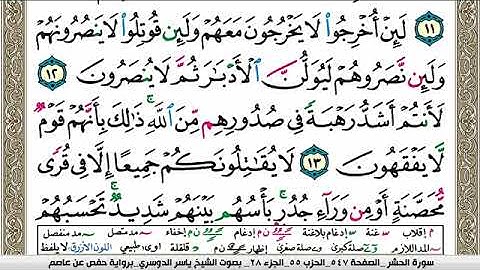 ١١ لَئِنْ أُخْرِجُوا۟ لَا يَخْرُجُونَ مَعَهُمْ وَلَئِن قُوتِلُوا۟ لَا يَنصُرُونَهُمْ
وَلَئِن نَّصَرُوهُمْ لَيُوَلُّنَّ ٱلْأَدْبَـٰرَ ثُمَّ لَا يُنصَرُونَ ١٢
لَأَنتُمْ أَشَدُّ رَهْبَةً فِى صُدُورِهِم مِّنَ ٱللَّهِ ۚ ذَٰلِكَ بِأَنَّهُمْ قَوْمٌ
لَّا يَفْقَهُونَ ١٣ لَا يُقَـٰتِلُونَكُمْ جَمِيعًا إِلَّا فِى قُرًى
مُّحَصَّنَةٍ أَوْ مِن وَرَآءِ جُدُرٍۭ ۚ بَأْسُهُم بَيْنَهُمْ شَدِيدٌ ۚ تَحْسَبُهُمْ
م إقلاب غنة إدغام بلاغنة إدغام إخفاء مد متصل مد منفصل
المد اللازم صلة كبرى وصلة صغرى إظهار قلقلة طبيعي اللون الأزرق لا يلفظ
سورة الحشر_الصفحة ٥٤٧_الحزب ٥٥_الجزء ٢٨_ بصوت الشيخ ياسر الدوسري_برواية حفص عن عاصم